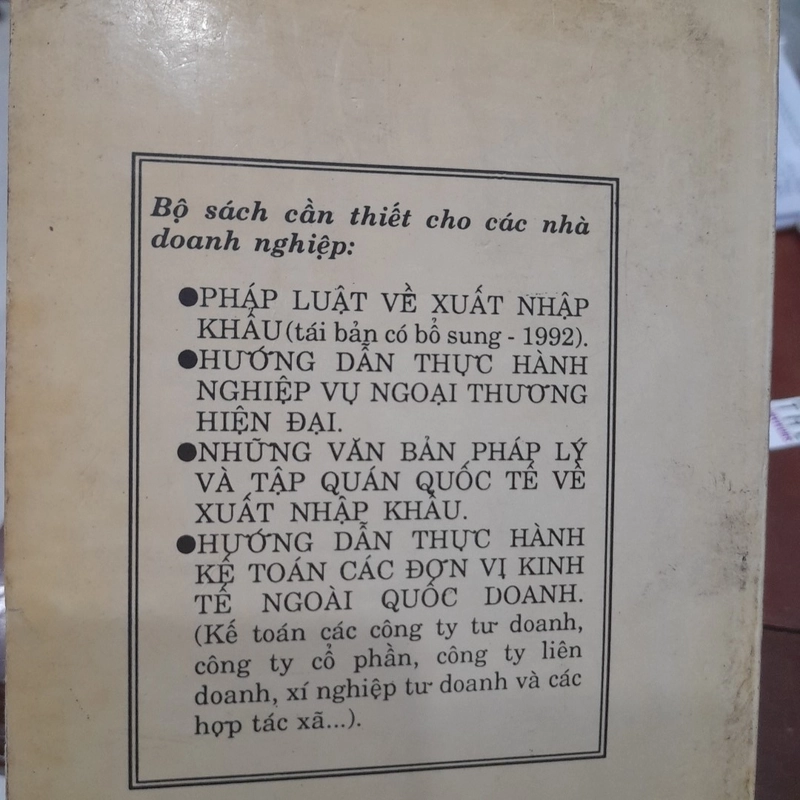 Bộ sách cần thiết cho các nhà
doanh nghiệp:
●PHÁP LUẬT VỀ XUẤT NHẬP
KHẨU(tái bản có bổ sung - 1992).
●HƯỚNG DẪN THỰC HÀNH
NGHIỆP VỤ NGOẠI THƯƠNG
HIỆN ĐẠI.
●NHỮNG VĂN BẢN PHÁP LÝ
VÀ TẬP QUÁN QUỐC TẾ VỀ
XUẤT NHẬP KHẨU.
●HƯỚNG DẪN THỰC HÀNH
KẾ TOÁN CÁC ĐƠN VỊ KINH
TẾ NGOÀI QUỐC DOANH.
(Kế toán các công ty tư doanh,
công ty cổ phần, công ty liên
doanh, xí nghiệp tư doanh và các
hợp tác xã...).